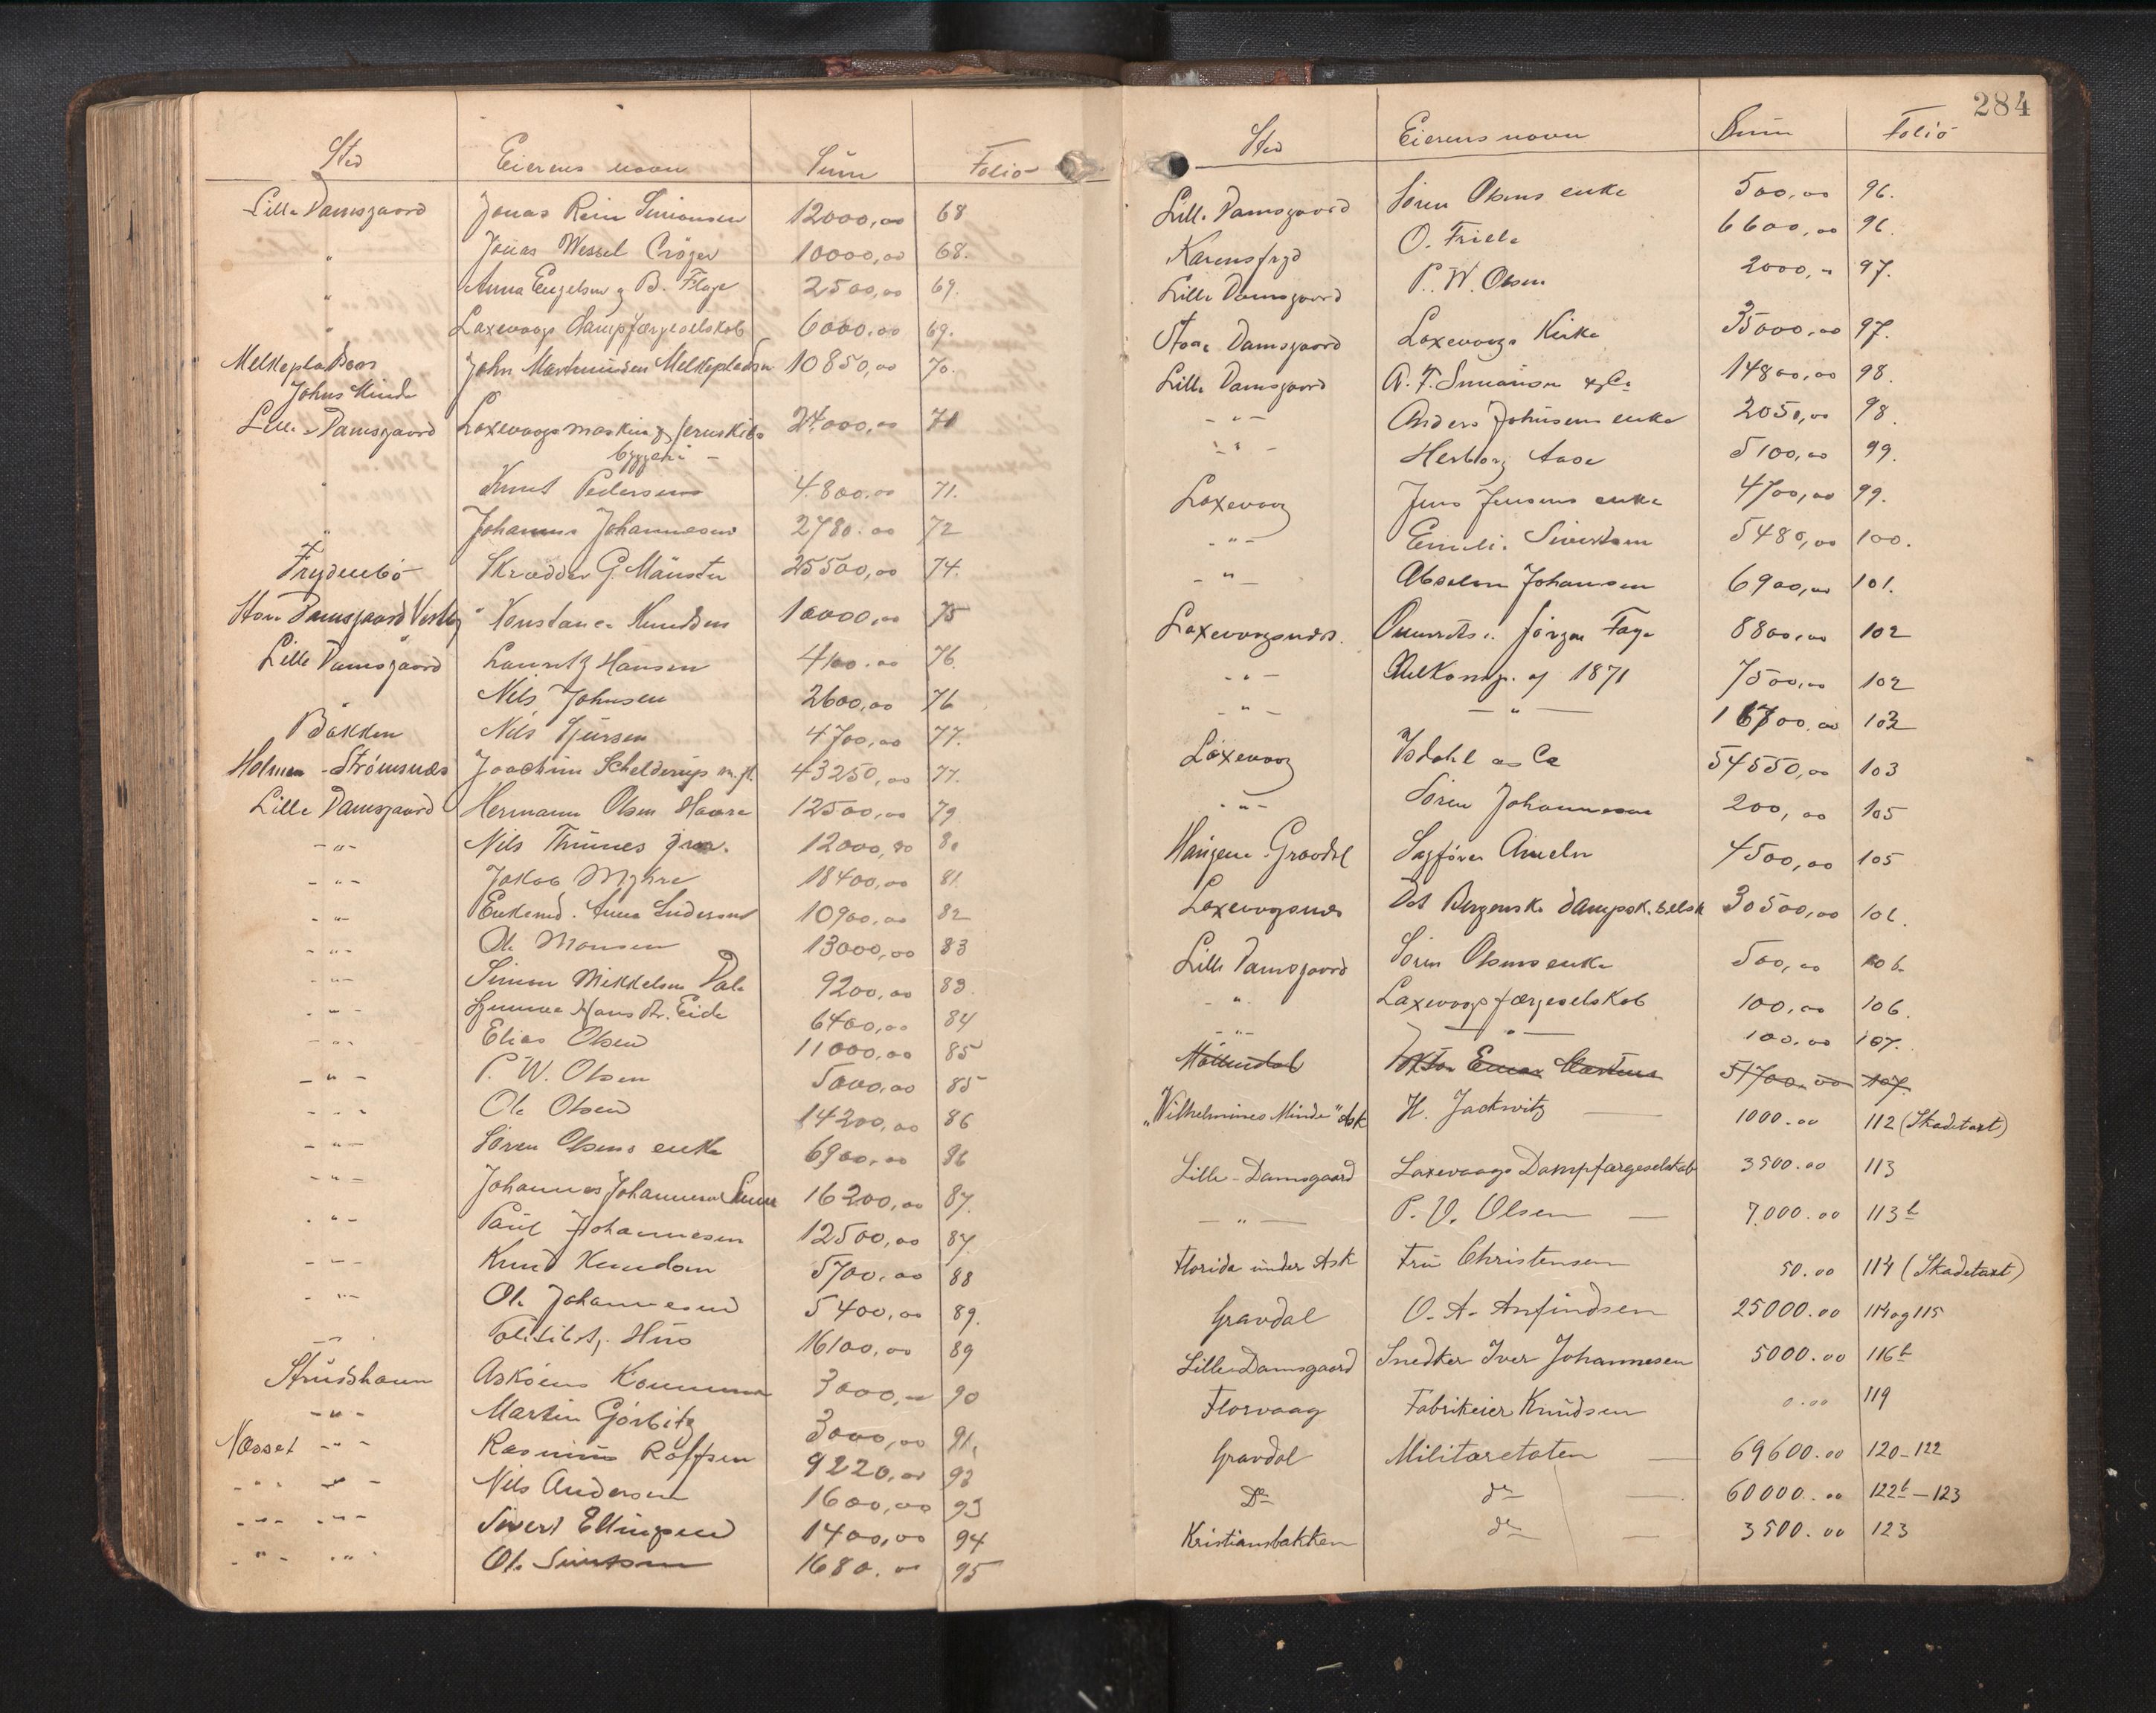 Sted Eierens navn Sum Folio
Lille Damsgaard Jonas Rein Simonsen 12000,00 68
" Jonas Wessel Cröger 10000,00 68.
" Anna Engelsen og B. Flage 2500,00 69.
" Laxevaags Dampfærgeselskab 6000.00 69.
Melkepladsen John Martinussen Melkepladsen 10850,00 70.
Johns Minde
Lille Damsgaard Laxevaags maskin og jernskibs 24.000,00 71
byggeri -
" Knut Pedersen 4.800.00 71.
" Johannes Johannesen 2780.00 72
Frydenbö Skrædder G. Münster 25500,00 74.
Store Damsgaard Konstance Knudsen 10000,00 75
Lille Damsgaard Lauritz Hansen 4100.00 76.
Nils Johnsen 2600,00 76
Bakken Nils Sjursen 4700,00 77.
Holmen - Strömsnæs Joachim Schelderup 43250,00 77.
Lille Damsgaard Hermann Olsen Haavre 12500,00 79
- " - Nils Thunes 12000,00 80
- " - Jakob Myhre 18400,00 81.
- " - Enkemd. Anna 10900,00 82
- " - Ole Monsen 13000,00 83
- " - Simon Mikkelsen Dale 9200,00 83.
- " - Hans Eide 6400,00 84
- " - Elias Olsen 11000,00 85
- " - P. W. Olsen 5000,00 85
- " - Ole Olsen 14200,00 86
- " - Sören Olsens enke 6900,00 86
- " - Johannes Johannesen 16200,00 87.
- " - Paul Johannesen 12500,00 87.
- " - Knud Knudsen 5700,00 88
- " - Ole Johannesen 5400,00 89.
- " - Hus 16100,00 89
Strusshavn Asköens Kommune 3000,00 90
- " - Martin Görbitz 3000,00 91.
Næsset - " - Rasmus Rolfsen 9220,00 93
- " - - " - Nils Andersen 1600,00 93
- " - - " - Sivert Ellingsen 1400,00 94
- " - - " - Ole Simonsen 1680.00 95
284
Sted Eierens navn Sum Folio
Lille Damsgaard Sören Olsens enke 500,00 96.
Karensfryd O. Friele 6600,00 96.
Lille Damsgaard P. W. Olsen 2000,- 97.
Store Damsgaard Laxevaags Kirke 35000,00 97.
Lille Damsgaard A. F. Simonsen & Co 14800,00 98.
- " - Anders Johnsens enke 2050,00 98.
- " - Herborg Aase 5100,00 99.
Laxevaag Jens Jensens enke 4700,00 99.
- " - Emilie Sivertsen 5480,00 100.
- " - Absalon Johansen 6900,00 101.
Laxevaagsnæs. Jörgen Faye 8800,00 102
- " - af 1871 7500,00 102
- " - — " — 16700.00 103
Laxevaag Isdahl & Co 54550,00 103
- " - Sören Johannesen 200,00 105
Gravdal Sagförer Ameln 4500,00 105
Laxevaagsnæs Det Bergenske dampsk. selsk 30500,00 106.
Lille Damsgaard Sören Olsens enke 500,00 106.
- " - Laxevaags færgeselskab 100,00 106.
- " - — " — 100.00 107.
Möllendal Doktor 51700.00 107.
"Vilhelmines Minde" Ask H. Jackwitz — 1000.00 112 (Skadetaxt)
Lille - Damsgaard Laxevaags Dampfærgeselskab 3500.00 113
— " — P. V. Olsen — 7.000.00 113 b
Florida under Ask Fru Christensen 50.00 114 (Skadetaxt)
Gravdal O. A. Anfindsen 25000.00 114 og 115
Lille Damsgaard Snedker Iver Johannesen 5000.00 116 b
Florvaag Fabrikeier Knudsen 0.00 119
Gravdal Militæretaten — 69600.00 120-122
Do do — 60000.00 122 b - 123
Kristiansbakken do — 3500.00 123